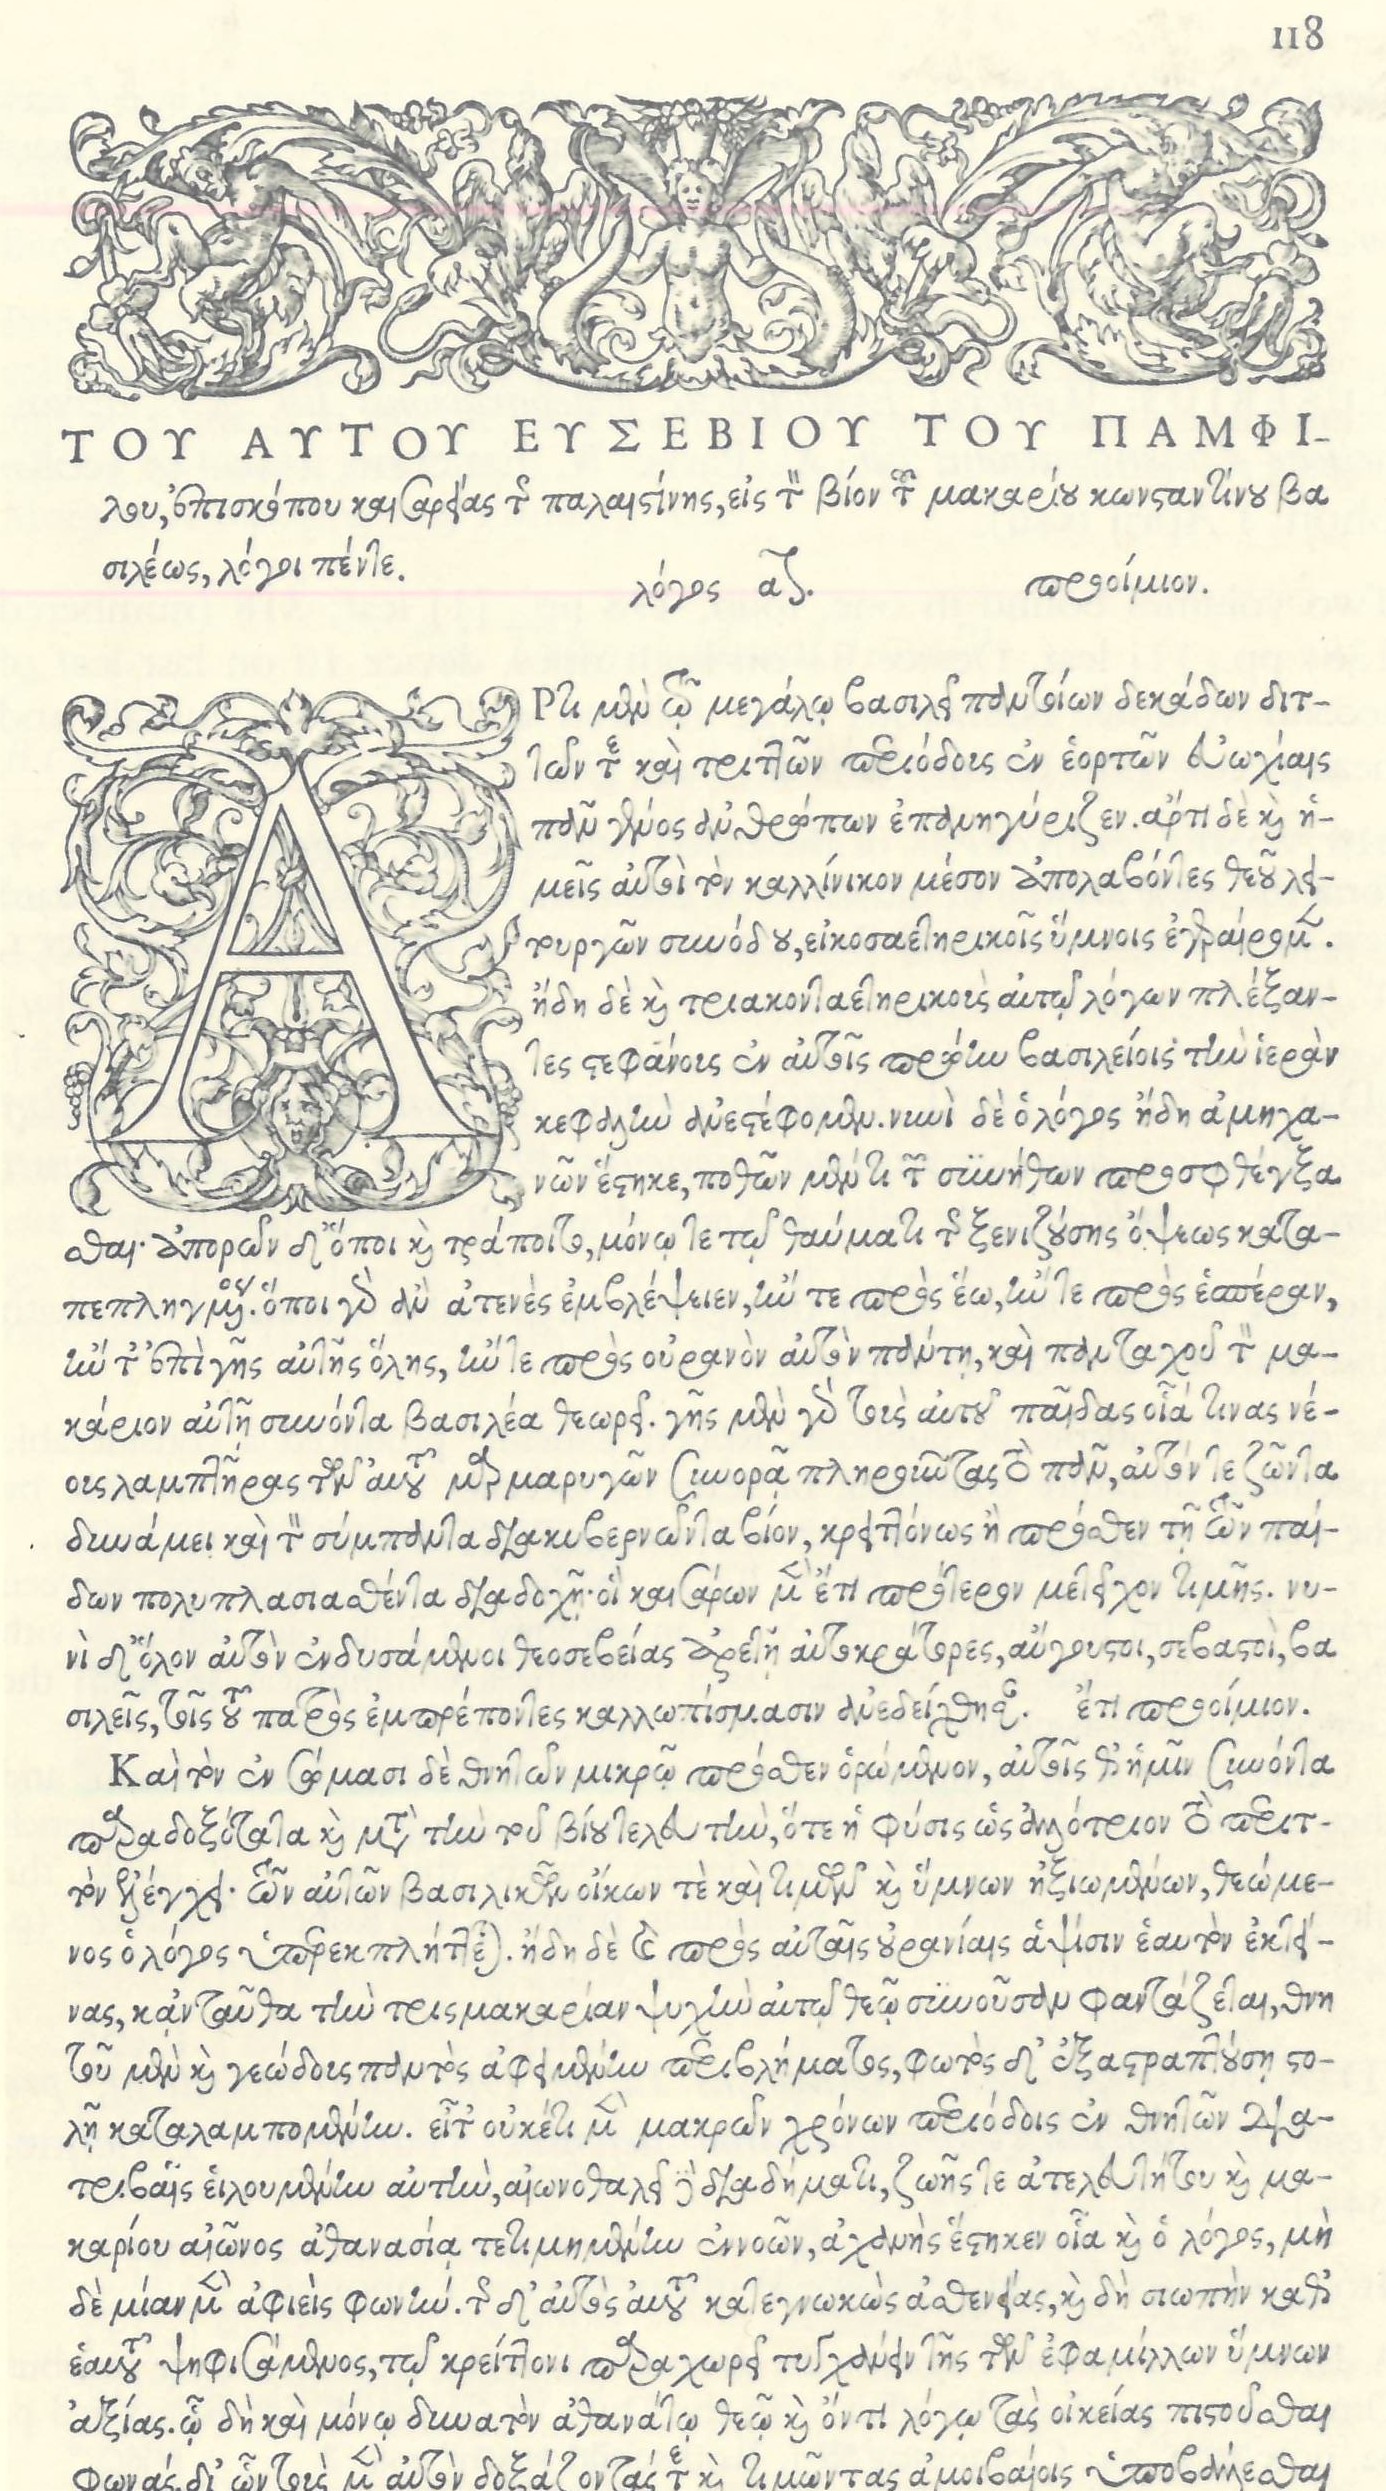 118
ΤΟΥ ΑΥΤΟΥ ΕΥΣΕΒΙΟΥ ΤΟΥ ΠΑΜΦΙ-
λου, ἐπισκόπου καισαρείας τῆς παλαιστίνης, εἰς τὸν βίον τοῦ μακαρίου κωνσταντίνου βα
σιλέως, λόγοι πέντε.
λόγος αος. προοίμιον.
ΑΡτι μὲν τῷ μεγάλῳ βασιλεῖ παντοίων δεκάδων διτ-
τῶν τὲ καὶ τριττῶν περιόδοις ἐν ἑορτῶν εὐωχίαις
πᾶν γένος ἀνθρώπων ἐπανηγύριζεν. ἄρτι δὲ καὶ ἡ-
μεῖς αὐτοὶ τὸν καλλίνικον μέσον ἀπολαβόντες θεοῦ λει-
τουργῶν συνόδου, εἰκοσαετηρικοῖς ὕμνοις ἐγεραίρομεν.
ἤδη δὲ καὶ τριακονταετηρικοὺς αὐτῷ λόγων πλέξαν-
τες στεφάνους ἐν αὐτοῖς πρώην βασιλείοις τὴν ἱερὰν
κεφαλὴν ἀνεστέφομεν. νυνὶ δὲ ὁ λόγος ἤδη ἀμηχα-
νῶν ἕστηκε, ποθῶν μέν τι τῶν συνήθων προσφθέγξα
σθαι· ἀπορῶν δ' ὅποι καὶ τράποιτο, μόνῳ τε τῷ θαύματι τῆς ξενιζούσης ὄψεως κατα-
πεπληγμένος. ὅποι γὰρ ἂν ἀτενὲς ἐμβλέψειεν, ἤν τε πρὸς ἕω, ἤν τε πρὸς ἑσπέραν,
ἤν τ' ἐπὶ γῆς αὐτῆς ὅλης, ἤν τε πρὸς οὐρανὸν αὐτὸν πάντη, καὶ πανταχοῦ τὸν μα-
κάριον αὐτῇ συνόντα βασιλέα θεωρεῖ. γῆς μὲν γὰρ τοὺς αὐτοῦ παῖδας οἷά τινας νέ-
ους λαμπτῆρας τῶν αὐτοῦ μαρμαρυγῶν συνορᾷ πληροῦντας τὸ πᾶν, αὐτόν τε ζῶντα
δυνάμει καὶ τὸν σύμπαντα διακυβερνῶντα βίον, κρειττόνως ἢ πρόσθεν τῇ τῶν παί-
δων πολυπλασιασθέντα διαδοχῇ· οἳ καισάρων μὲν ἔτι πρότερον μετεῖχον τιμῆς. νυ-
νὶ δ' ὅλον αὐτὸν ἐνδυσάμενοι θεοσεβείας ἀρετῇ αὐτοκράτορες, αὔγουστοι, σεβαστοὶ, βα
σιλεῖς, τοῖς τοῦ πατρὸς ἐμπρέποντες καλλωπίσμασιν ἀνεδείχθησαν. ἔτι προοίμιον.
Καὶ τὸν ἐν σώμασι δὲ θνητῶν μικρῷ πρόσθεν ὁρώμενον, αὐτοῖς θ' ἡμῖν συνόντα
παραδοξότατα καὶ μετὰ τὴν τοῦ βίου τελευτὴν, ὅτε ἡ φύσις ὡς ἀλλότριον τὸ περιτ-
τὸν ἐξελέγχει· τῶν αὐτῶν βασιλικῶν οἴκων τὲ καὶ τιμῶν καὶ ὕμνων ἠξιωμένων, θεώμε-
νος ὁ λόγος ὑπερεκπλήττεται. ἤδη δὲ καὶ πρὸς αὐταῖς οὐρανίαις ἁψίσιν ἑαυτὸν ἐκτεί-
νας, κᾀνταῦθα τὴν τρισμακαρίαν ψυχὴν αὐτῷ θεῷ συνοῦσαν φαντάζεται, θνη
τοῦ μὲν καὶ γεώδους παντὸς ἀφειμένην περιβλήματος, φωτὸς δ' ἐξαστραπτούσῃ στο-
λῇ καταλαμπομένην. εἶτ' οὐκέτι μὲν μακρῶν χρόνων περιόδοις ἐν θνητῶν δια-
τριβαῖς εἱλουμένην αὐτὴν, αἰωνοθαλεῖ δὲ διαδήματι, ζωῆς τε ἀτελευτήτου καὶ μα-
καρίου αἰῶνος ἀθανασίᾳ τετιμημένην ἐννοῶν, ἀχανὴς ἕστηκεν οἷα καὶ ὁ λόγος, μὴ
δὲ μίαν μὲν ἀφιεὶς φωνὴν. τῆς δ' αὐτὸς αὑτοῦ κατεγνωκὼς ἀσθενείας, καὶ δὴ σιωπὴν καθ'
ἑαυτοῦ ψηφισάμενος, τῷ κρείττονι παραχωρεῖ τυγχάνειν τῆς τῶν ἐφαμίλλων ὕμνων
ἀξίας. ᾧ δὴ καὶ μόνῳ δυνατὸν ἀθανάτῳ θεῷ καὶ ὄντι λόγῳ τὰς οἰκείας πιστοῦσθαι
φωνάς. δι' ὧν τοὺς μὲν αὐτὸν δοξάζοντάς τὲ καὶ τιμῶντας ἀμοιβαίοις ὑπερβαλέσθαι